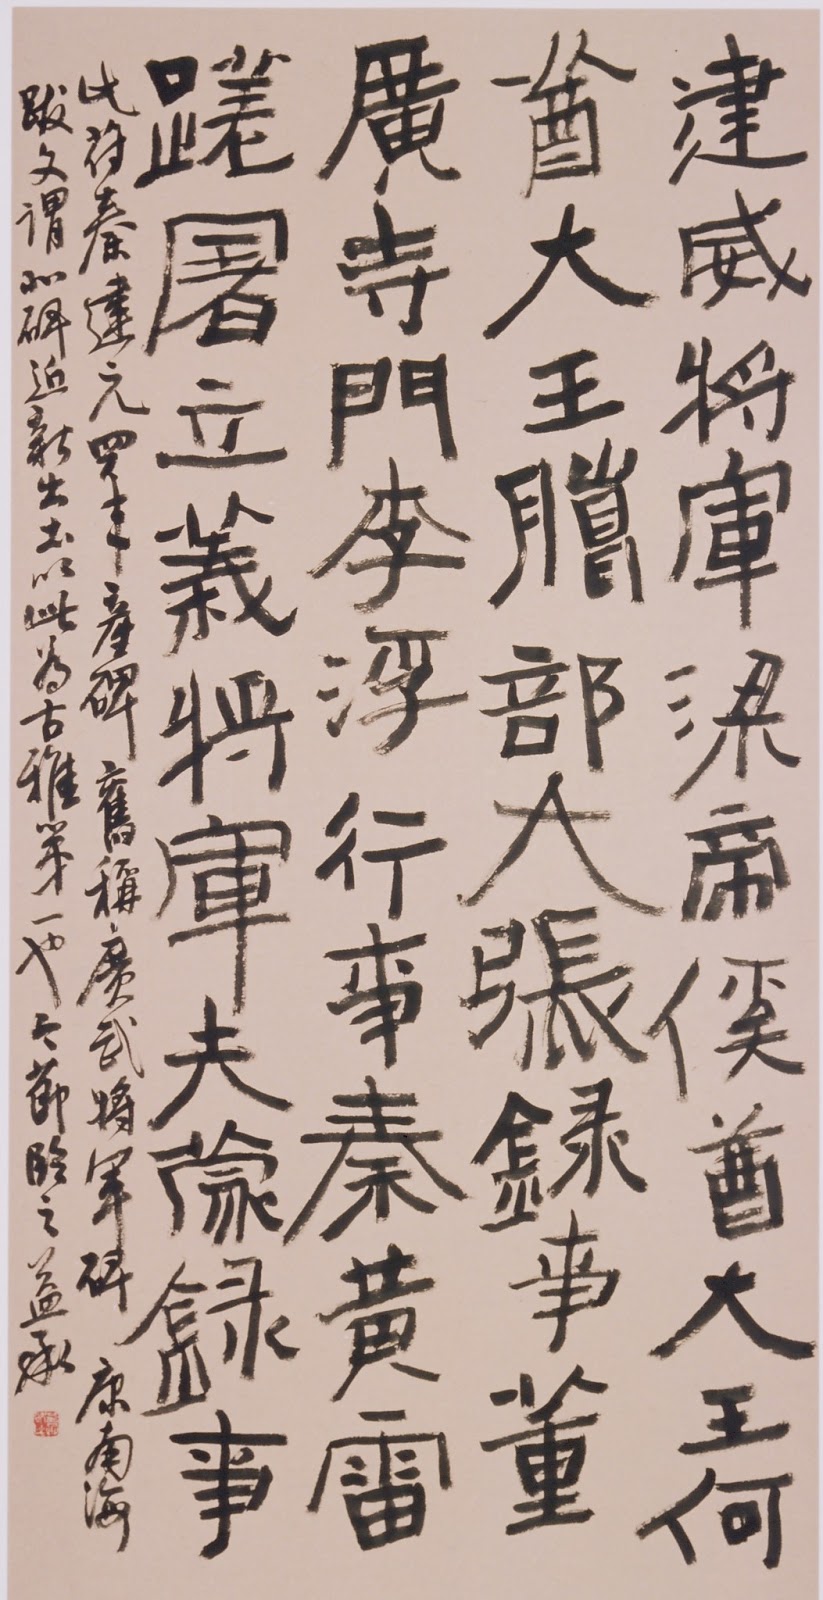 建威將軍梁帝傒酋大王何
酋大王騰部大張錄事董
廣寺門李浮行事秦黃雷
蹉屠立義將軍夫蒙錄事
此苻秦建元四年產碑舊稱廣武將軍碑康南海
跋文謂北碑近新出土以此為古雅第一也今節臨之益承